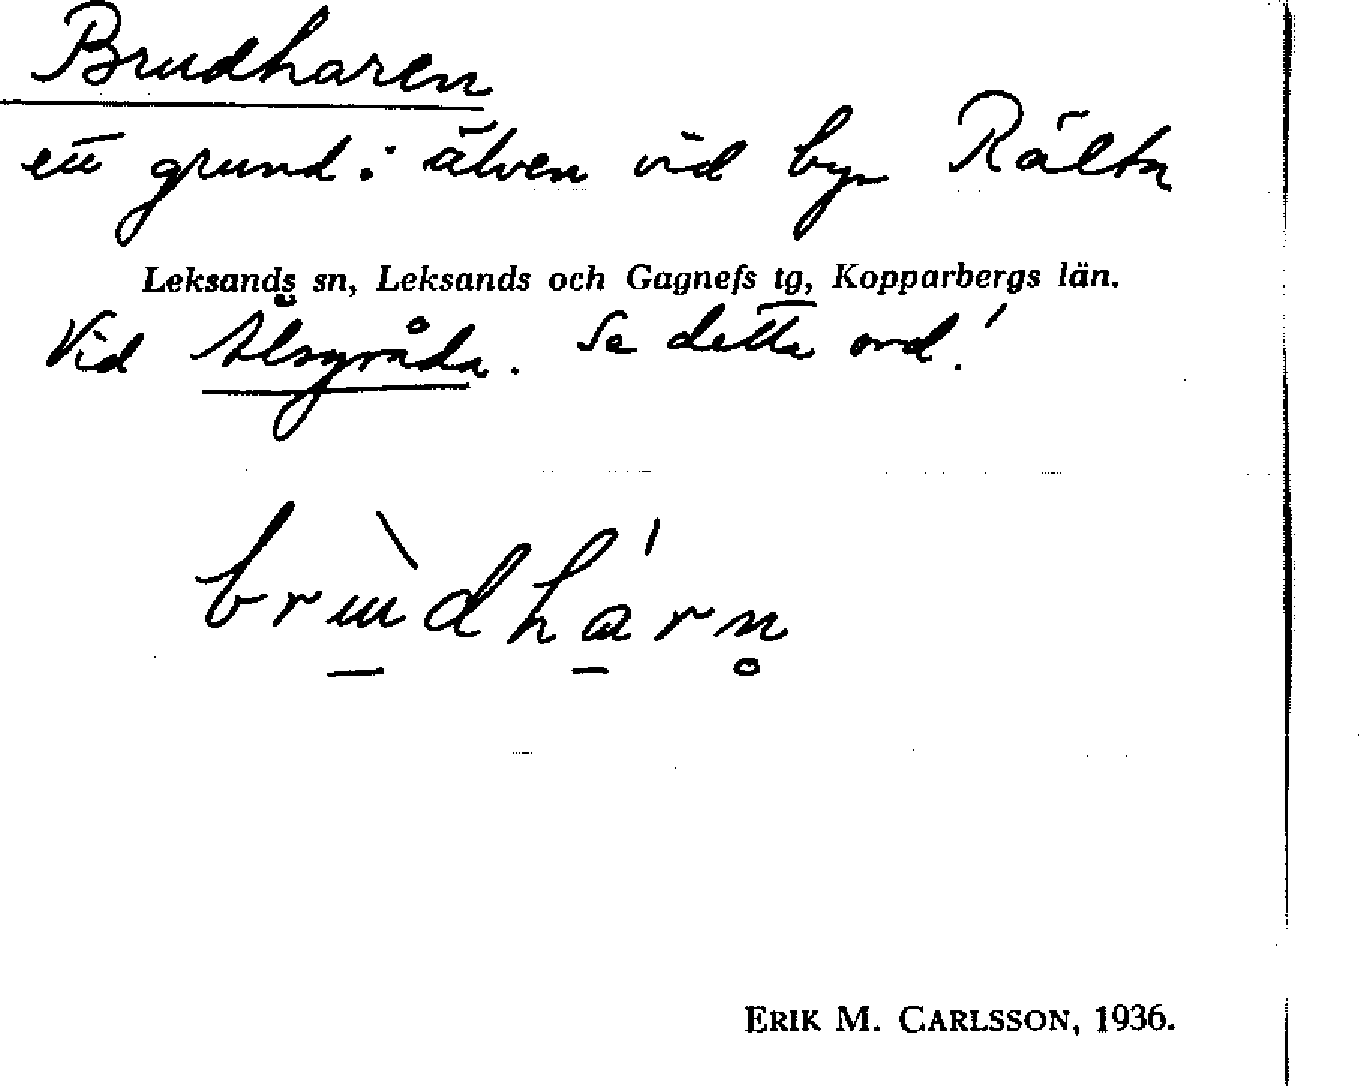 Brudharen
ett grund i älven vid byn Rälta
Leksands sn, Leksands och Gagnefs tg, Kopparbergs län.
Vid Ålsgråda. Se detta ord!
brùdhárn̥
ERIK M. CARLSSON, 1936.